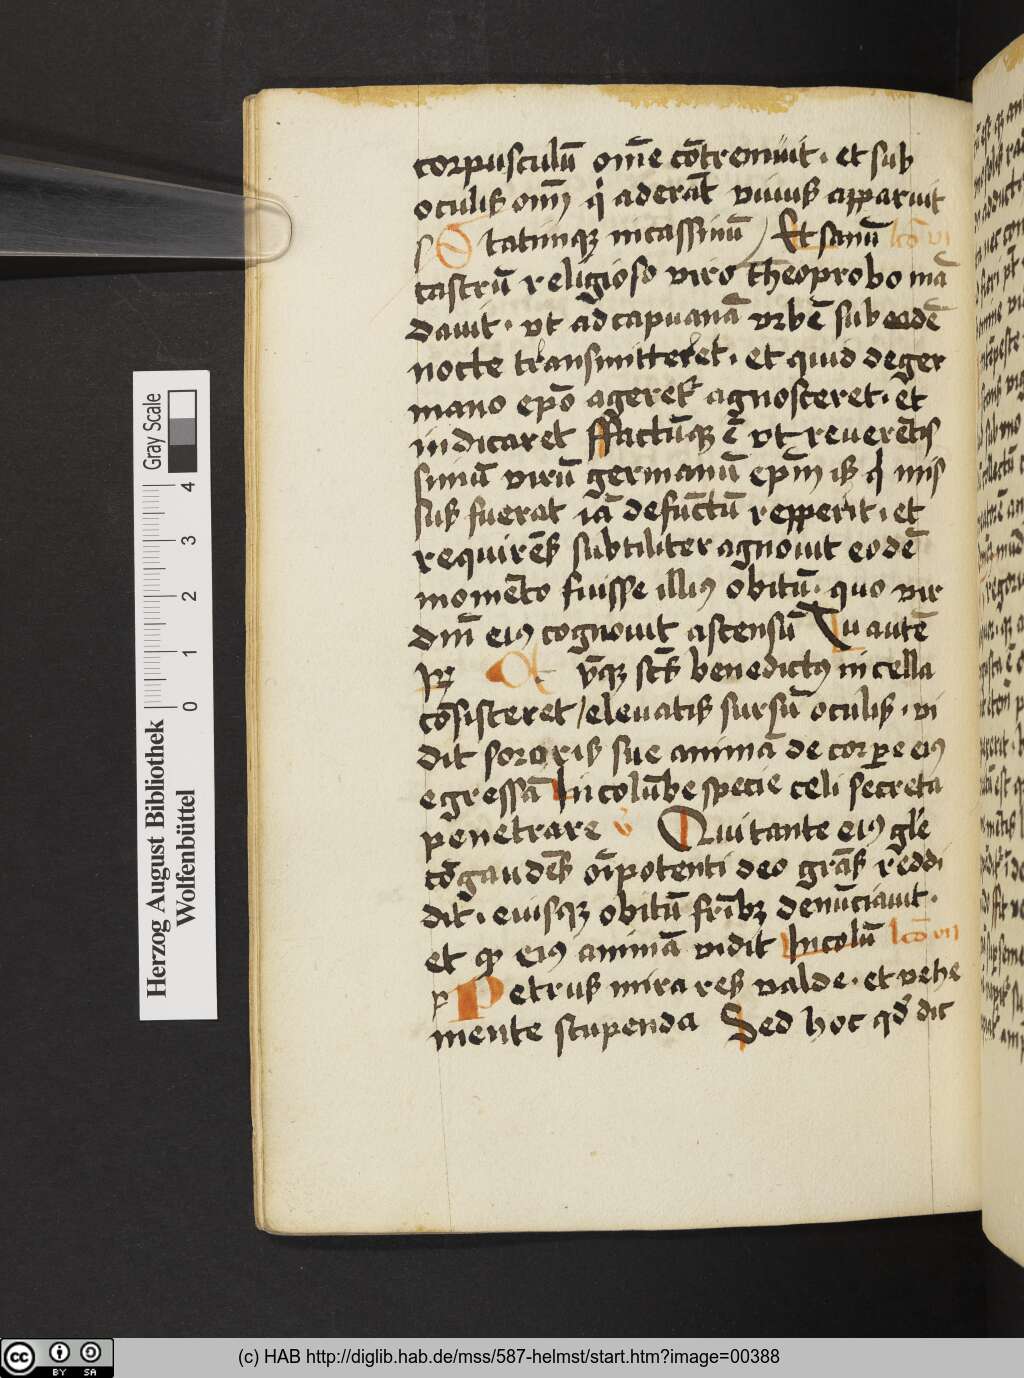 corpusculū om̄e cōtremuit · et sub
oculis om̄ q̇ aderāt viuus apparuit
s Statimq; in cassinū Et sanū lcō vi
castrū religioso viro theoprobo mā
dauit · vt ad capuanā vrbē sub eadē
nocte transmitteret · et quid de ger
mano epō ageretᷣ agnosceret · et
indicaret ffactūq; ē vt reuerētis
simū virū germanū epm̄ is q̇ mis
sus fuerat iā defūctū repperit · et
requirēs subtiliter agnouit eodē
momēto fuisse illiꝰ obitū · quo vir
dn̄i eiꝰ cognouit ascensū Tu autē
sct̄s benedictꝰ in cella
cōsisteret / eleuatis sursū oculis · vi
dit sororis sue animā de corpore eiꝰ
egressā In colūbe specie celi secreta
penetrare v Qui tante eiꝰ gl̄e
cōgaudēs oīpotenti deo grās reddi
dit · eiusq; obitū frībꝫ denūciauit ·
et qꝫ eiꝰ animā vidit In colū lcō vii
p Petrus mira res valde · et vehe
mente stupenda Sed hoc qd̄ dic
Herzog August Bibliothek
Wolfenbüttel
Gray Scale
0 1 2 3 4
cc BY SA
(c) HAB http://diglib.hab.de/mss/587-helmst/start.htm?image=00388